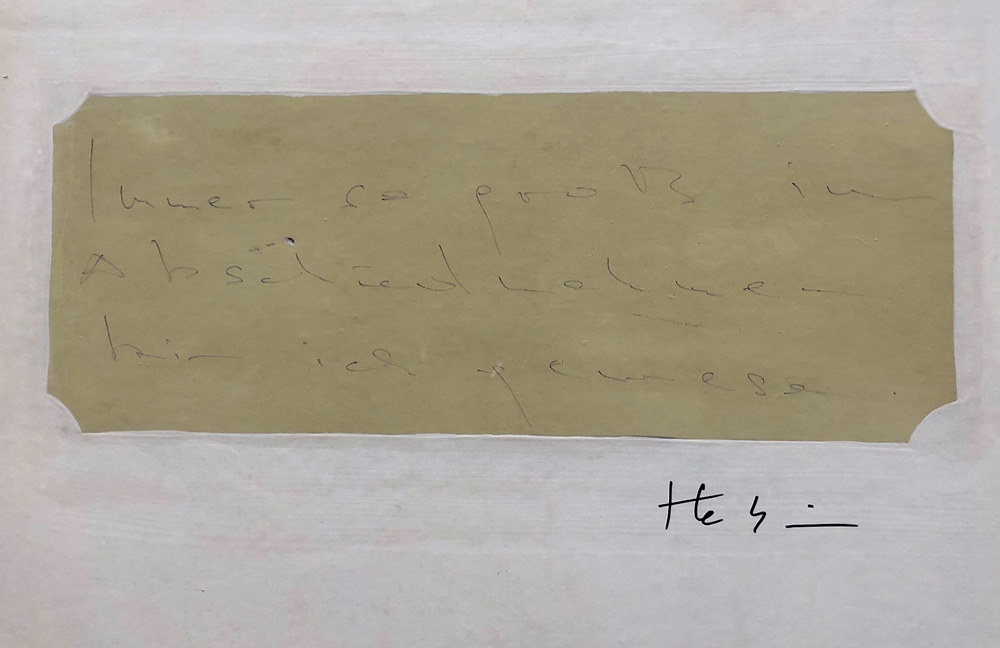 Immer so groß im
Abschiednehmen
bin ich gewese .